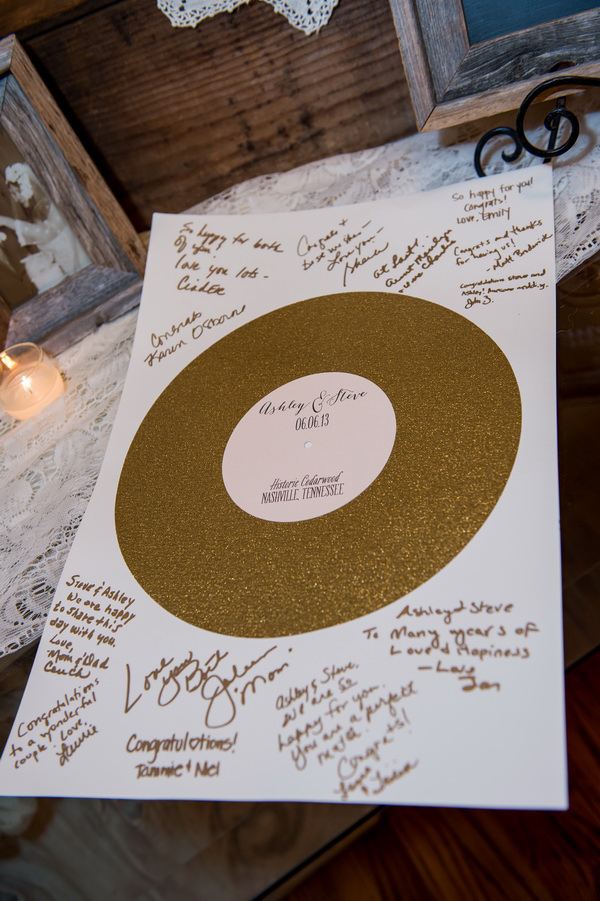 So happy for both
of you.
love you lots-
Congrats +
best wishes -
Love you -
at last!
So happy for you!
Congrats!
Love, Emily
Congrats and thanks
for having us!
- Matt
Congratulations Steve and
Ashley!
John J.
Congrats
Karen Osborn
Ashley & Steve
06.06.13
Historic Cedarwood
NASHVILLE, TENNESSEE
Steve & Ashley
We are happy
to share this
day with you.
Love,
Mom & Dad
Couch
Congratulations
to a wonderful
couple! Love,
Laurie
Love you
Best
"Mom"
Congratulations!
Tammie & Mel
Ashley & Steve,
We are so
happy for you.
You are a perfect
match.
Congrats!
Ashley & Steve
To Many years of
Love & Happiness
- Love
Jan